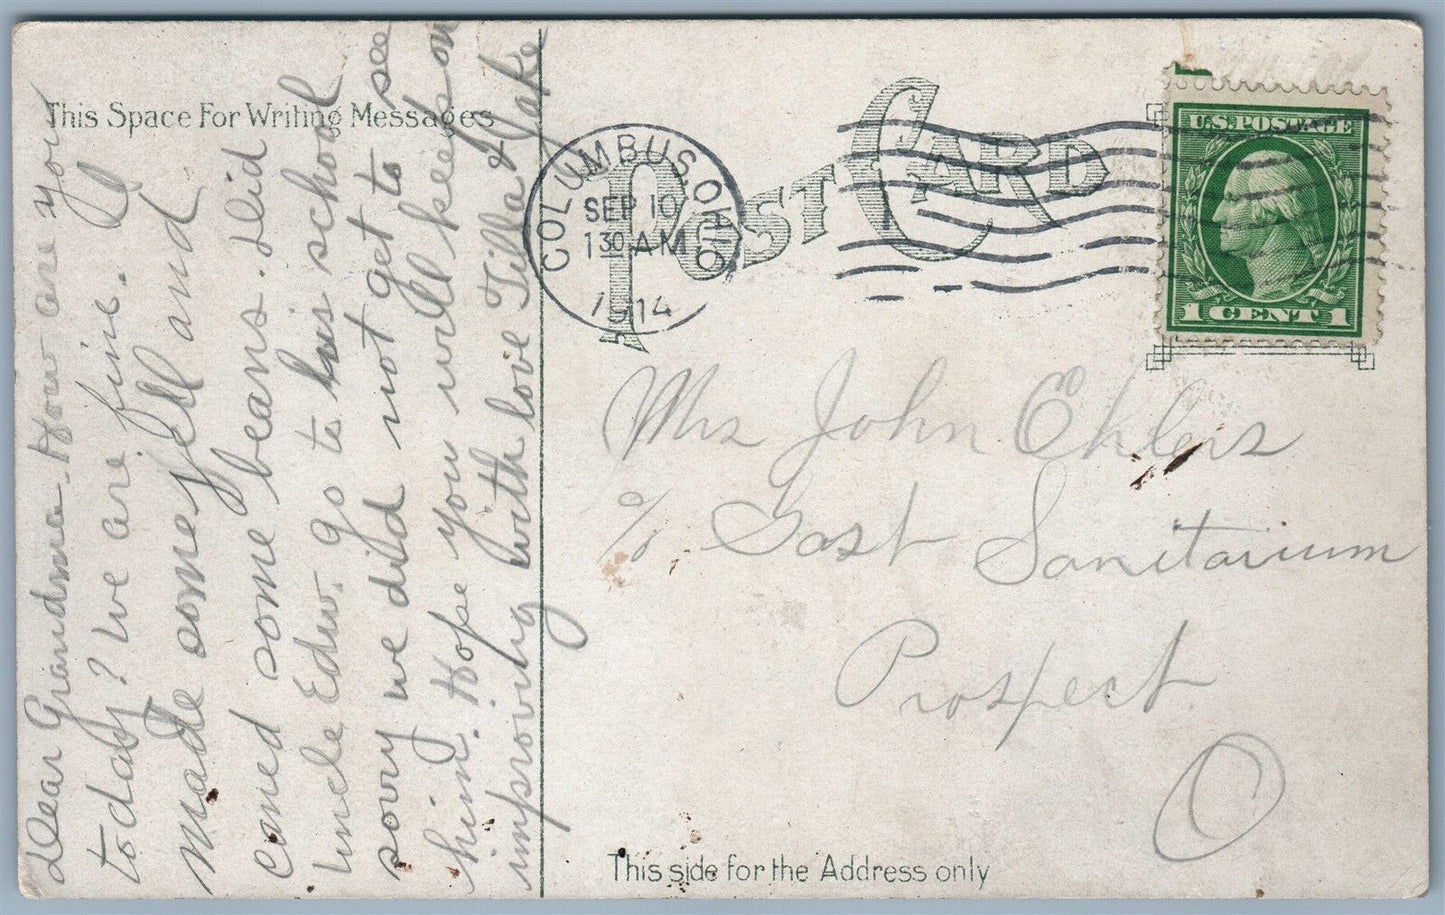 This Space For Writing Messages
Dear Grandma - How are you
today? We are fine. I
made some jell and
caned some beans. Did
Uncle Edw. go to his school
sorry we did not get to see
him. Hope you will keep on
improving with love Tilla & Jake
POST CARD
COLUMBUS, OHIO
SEP 10
1 30 AM
1914
U.S. POSTAGE
1 CENT 1
Mrs John Ehlers
% Gast Sanitarium
Prospect
O
This side for the Address only